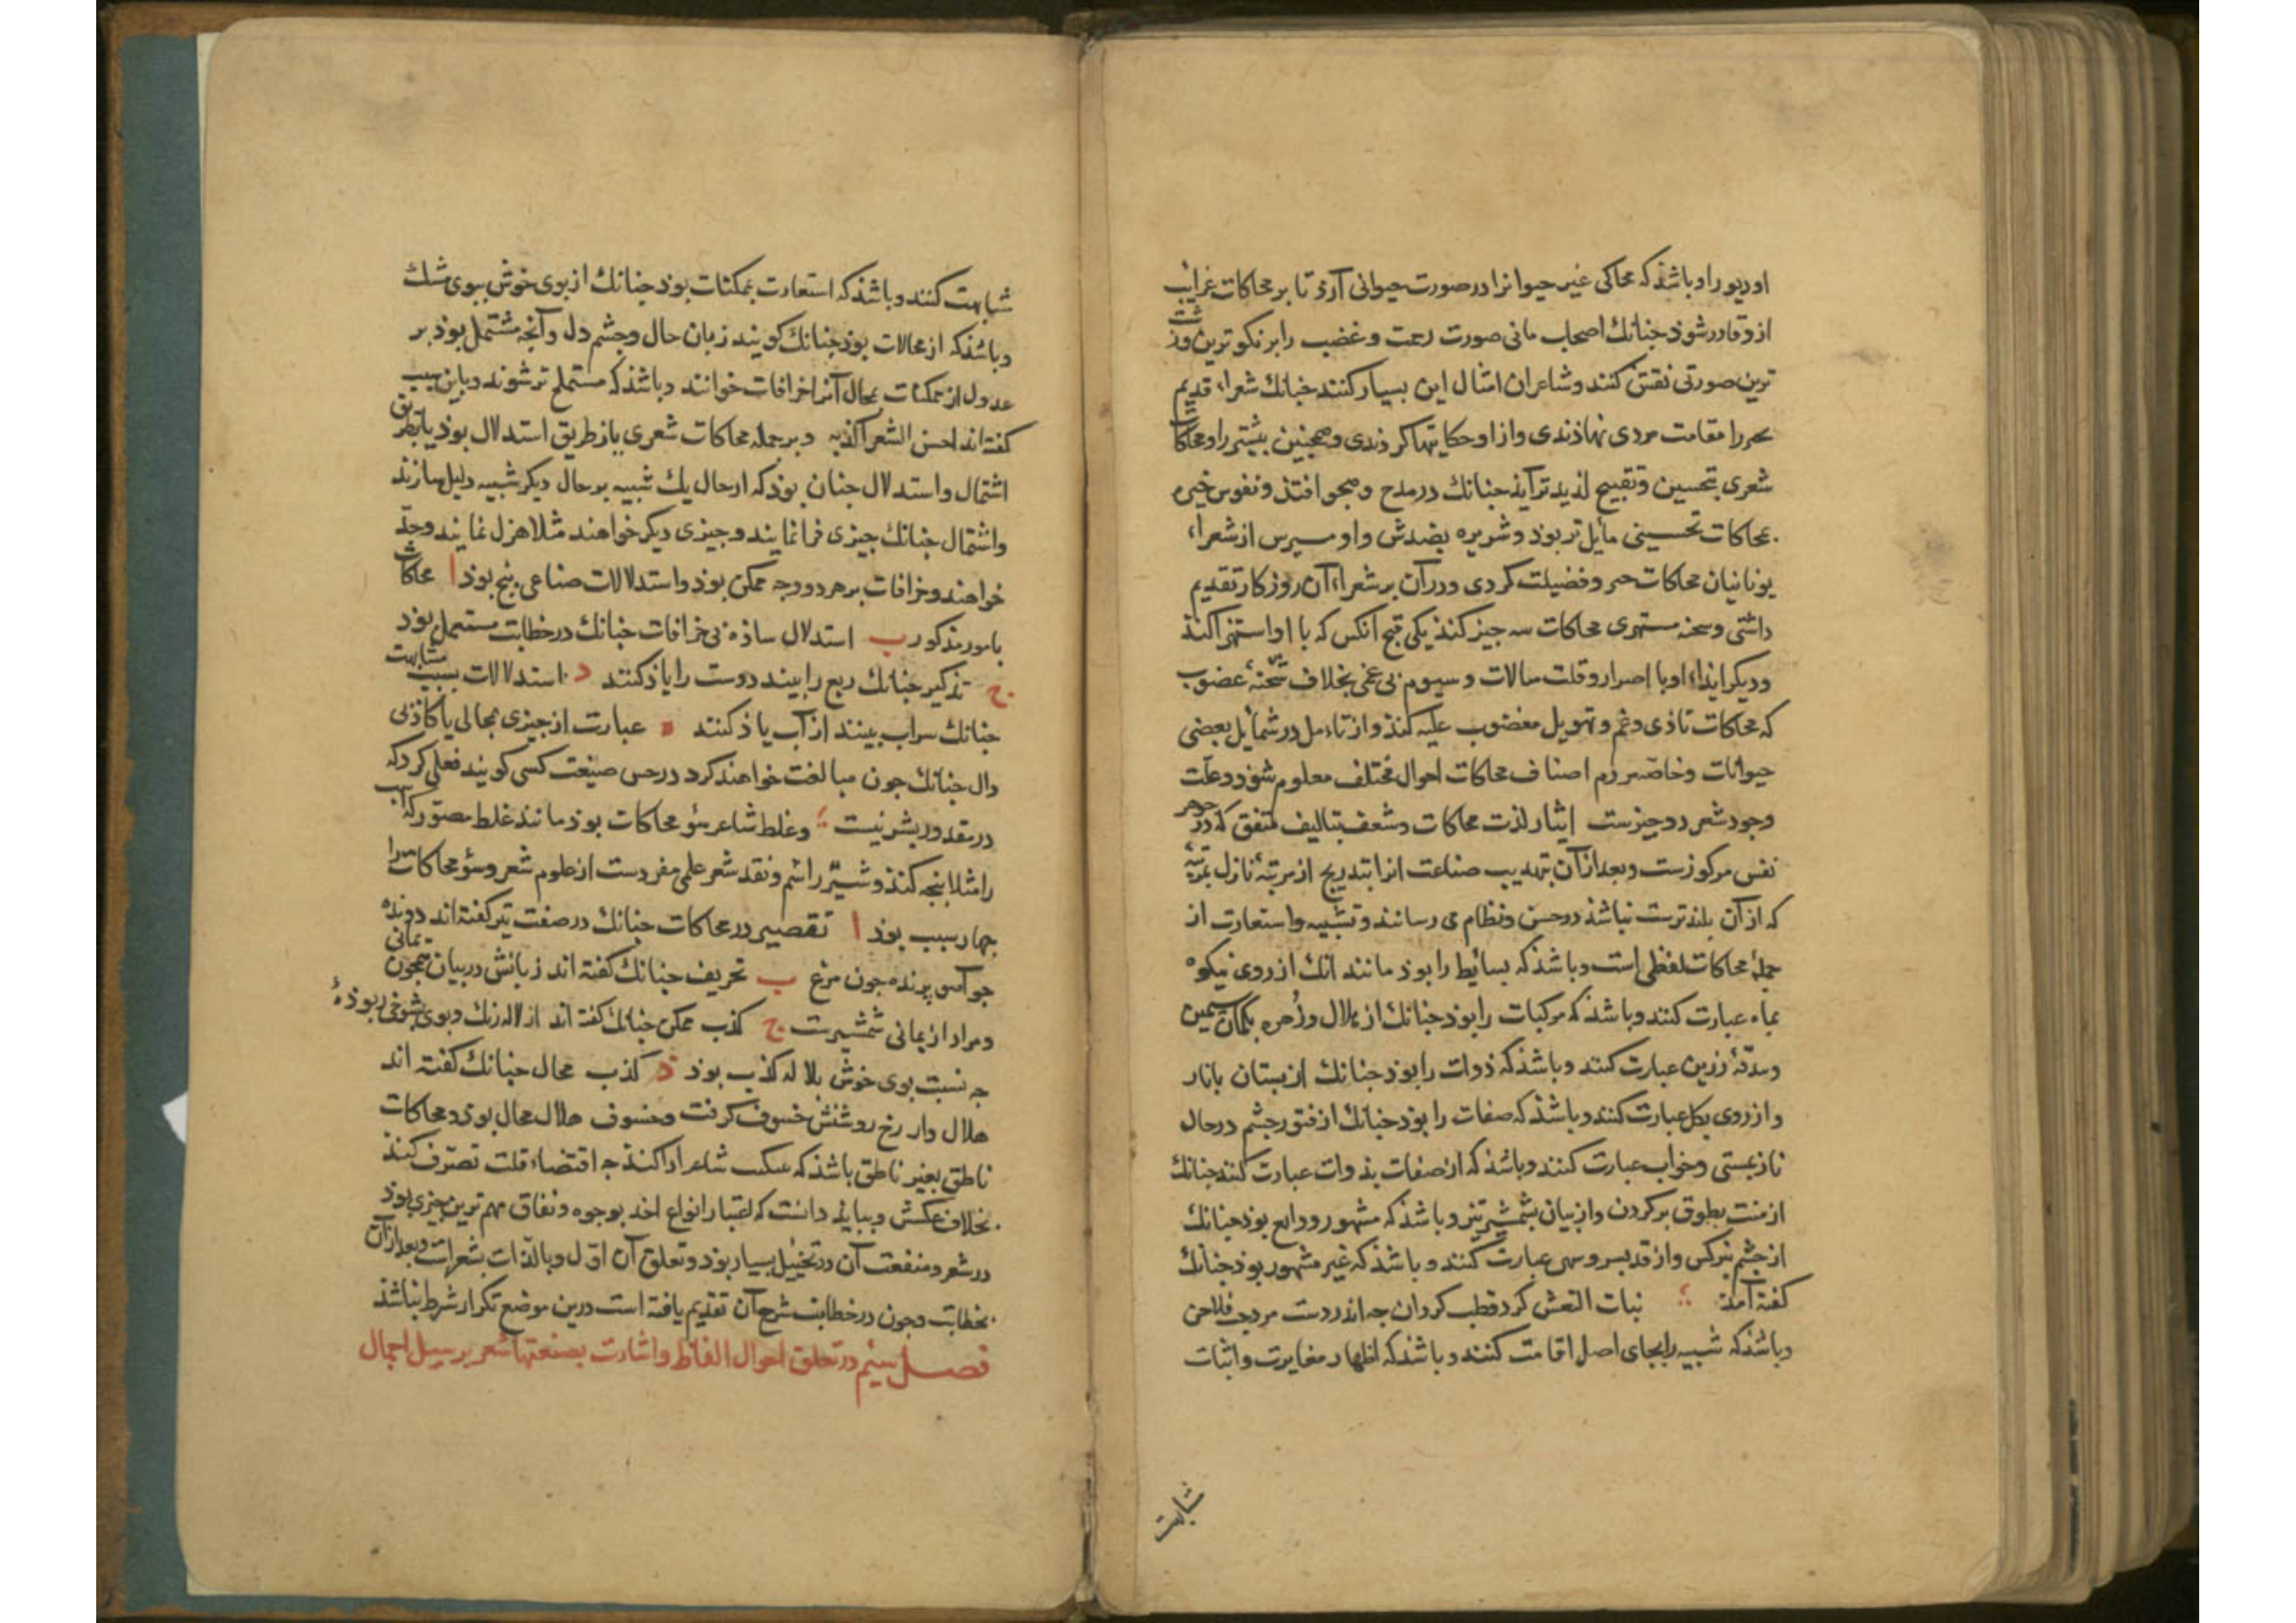 او دیو را و باشذ که محاکی غیر حیوانرا در صورت حیوانی آرد تا بر محاکات غرایب
ازو قادر شوذ جنانك اصحاب مانی صورت رحمت و غضب را بر نکوترین و زشت
ترین صورتی نقش کنند و شاعران امثال این بسیار کنند جنانك شعراء قدیم
را مقامت مردی نهاذندی و ازو حکایتها کرذندی و همجنین بیشتر را و محاکات
شعری بتحسین و تقبیح لذیذتر آیذ جنانك در مدح و هجو افتذ و نفوس خیره
بمحاکات تحسینی مایل تر بوذ و شریره بضدش و اومیرس از شعراء
یونانیان محاکات خیر و فضیلت کردی و در آن بر شعراء آن روزکار تقدیم
داشتی و سحنه مستهزی محاکات سه جیز کنذ یکی قبح آنکس که با او استهزا کنذ
و دیکر ایذاء او با اصرار و قلت مبالات و سیوم بی غمی بخلاف سحنهٔ غضوب
که محاکات تاذی و غم و تهویل مغضوب علیه کنذ و از تامل در شمایل بعضی
حیوانات و خاصه مردم اصناف محاکات احوال مختلف معلوم شوذ و علّت
وجود شعر دو جیزست ایثار لذت محاکات و شعف بتالیف متفق که در جوهر
نفس مرکوزست و بعد از آن بتهذیب صناعت انرا بتدریج از مرتبهٔ نازل بمرتبهٔ
که از آن بلندترست نباشذ در حسن و نظام می رسانند و تشبیه و استعارت از
جملهٔ محاکات لفظی است و باشذ که بسایط را بوذ مانند آنك از روی نیکو
بماه عبارت کنند و باشذ که مرکبات را بوذ جنانك از هلال و زُهره بکمان سیمین
و بندقهٔ زرین عبارت کنند و باشذ که ذوات را بوذ جنانك از بستان بانار
و از روی بکل عبارت کنند و باشذ که صفات را بوذ جنانك از فتور جشم در حال
ناز بمستی و خواب عبارت کنند و باشذ که از صفات بذوات عبارت کنند جنانك
از منت بطوق بر کردن و از بیان بشمشیر تیز و باشذ که مشهور و رایع بوذ جنانك
از جشم بنرکس و از قد بسرو سهی عبارت کنند و باشذ که غیر مشهور بوذ جنانك
کفته آمذ نبات النعش کرد قطب کردان جه اندر دست مرد جب فلاخن
و باشذ که شبیه را بجای اصل اقامت کنند و باشذ که اظهار مغایرت و اثبات
شبابهت
شبابهت کنند و باشذ که استعارت بممکنات بوذ جنانك از بوی خوش ببوی مشك
و باشذ که از محالات بوذ جنانك کویند زبان حال و جشم دل و آنجه مشتمل بوذ بر
عدول از ممکنات بمحال آنرا خرافات خوانند و باشذ که مستملح تر شوند و باین سبب
کفته اند احسن الشعر اکذبه و بر جمله محاکات شعری یا بر طریق استدلال بوذ یا بطریق
اشتمال و استدلال جنان بوذ که از حال یك شبیه بر حال دیکر شبیه دلیل سازند
و اشتمال جنانك جیزی فرا نمایند و جیزی دیکر خواهند مثلا هزل نمایند و جدّ
خواهند و خرافات بر هر دو وجه ممکن بوذ و استدلالات صناعی پنج بوذ ا محاکات
بامور مذکور ب استدلال ساذه بی خرافات جنانك در خطابت مستعمل بوذ
ج تذکیر جنانك ربع را بینند دوست را یاذ کنند د استدلالات بسبب مشابهت
جنانك سراب بینند از آب یاذ کنند ه عبارت از جیزی بمحالی یا کاذبی
دال جنانك جون مبالغت خواهند کرد در حسن صنعت کسی کویند فعلی کرد که
در مقدور بشر نیست و غلط شاعر بسؤ محاکات بوذ مانند غلط مصوّر که اسب
را مثلا بنجه کنذ و شیر را سُم و نقد شعر علمی مفردست از علوم شعر و سؤ محاکات را
جهار سبب بوذ ا تقصیر در محاکات جنانك در صفت تیر کفته اند دونده
جو آهو پرنده جون مرغ ب تحریف جنانك کفته اند زبانش در بیان همجون یمانی
و مراد از یمانی شمشیرست ج کذب ممکن جنانك کفته اند از لاله رنك و بوی بشوخی ربوذهٔ
جه نسبت بوی خوش بلاله کذب بوذ د کذب محال جنانك کفته اند
هلال وار رخ روشنش خسوف کرفت و خسوف هلال محال بوذ و محاکات
ناطق بغیر ناطق باشذ که شاعر را کنذ جه اقتضاء قلت تصرّف کنذ
بخلاف عکسش و ببایذ دانست که اعتبار انواع اخذ بوجوه و نفاق مهم ترین جیزی بوذ
در شعر و منفعت آن در تخییل بسیار بوذ و تعلق آن اوّل و بالذات بشعر است و بعد از آن
بخطابت و جون در خطابت شرح آن تقدیم یافته است درین موضع تکرار شرط نباشذ
فصل سیُم در تعلق احوال الفاظ و اشارت بصنعتهاء شعر بر سبیل اجمال